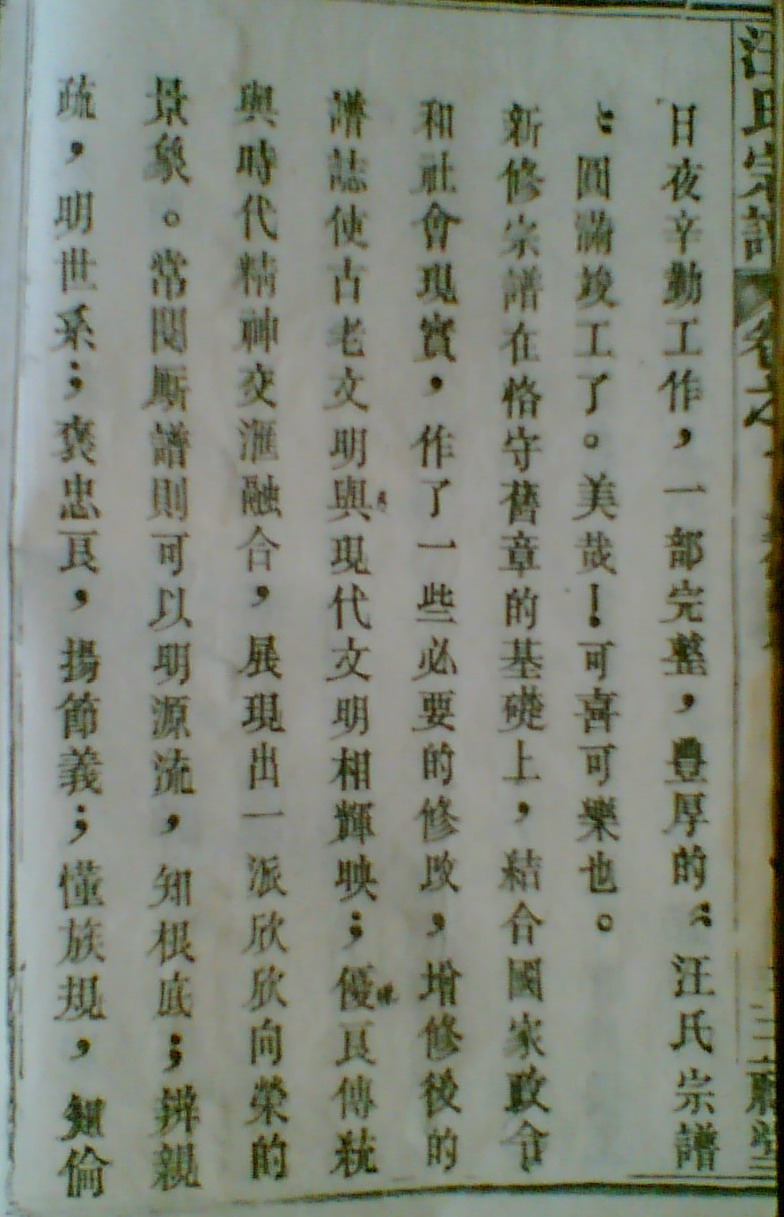 汪氏宗譜 卷之
日夜辛勤工作，一部完整，豐厚的〝汪氏宗譜
〞圓滿竣工了。美哉！可喜可樂也。
新修宗譜在恪守舊章的基礎上，結合國家政令
和社會現實，作了一些必要的修改，增修後的
譜誌使古老文明與現代文明相輝映；優良傳統
與時代精神交滙融合，展現出一派欣欣向榮的
景象。常閱斯譜則可以明源流，知根底；辨親
疏，明世系；褒忠良，揚節義；懂族規，知倫